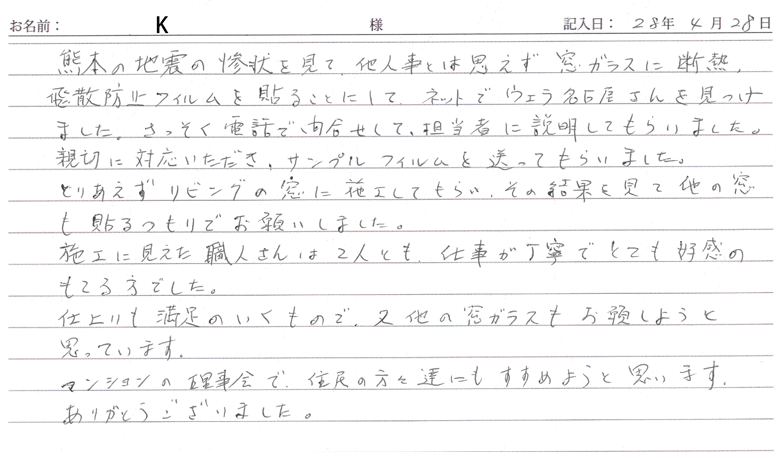 お名前： K 様 記入日：28年 4月 28日
熊本の地震の惨状を見て、他人事とは思えず 窓ガラスに 断熱、
飛散防止フィルムを貼ることにして、ネットでヴェラ名古屋さんを見つけ
ました。さっそく電話で問合せして、担当者に説明してもらいました。
親切に対応いただき、サンプルフィルムを送ってもらいました。
とりあえずリビングの窓に施工してもらい、その結果を見て他の窓
も貼るつもりでお願いしました。
施工に見えた職人さんは2人とも、仕事が丁寧でとても好感の
もてる方でした。
仕上りも満足のいくもので、又他の窓ガラスもお願しようと
思っています。
マンションの理事会で、住民の方々達にもすすめようと思います。
ありがとうございました。